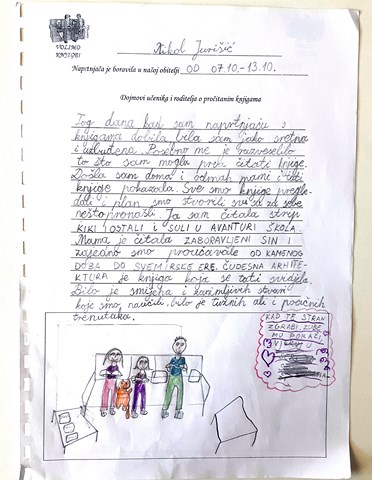 VOLIMO
KNJIGU!
Nikol Jurišić
Naprtnjača je boravila u našoj obitelji OD 07.10.-13.10.
Dojmovi učenika i roditelja o pročitanim knjigama
Tog dana kad sam naprtnjaču s
knjigama dobila bila sam jako sretna
i uzbuđena. Posebno me je razveselilo
to što sam mogla prva čitati knjige.
Došla sam doma i odmah mami i tati
knjige pokazala. Sve smo knjige pregle-
dali i plan smo stvorili svi za za sebe
nešto pronašli. Ja sam čitala strip
KIKI I OSTALI I SULI U AVANTURI ŠKOLA.
Mama je čitala ZABORAVLJENI SIN I
zajedno smo proučavale OD KAMENOG
DOBA DO SVEMIRSKE ERE. ČUDESNA ARHITE-
KTURA je knjiga koja se tati svidjela.
Bilo je smijeha i zanimljivih stvari
koje smo naučili, bilo je tužnih ali i poučnih
trenutaka.
KAD TE STRAH
ZGRABI, ZUBE
MU POKAŽI